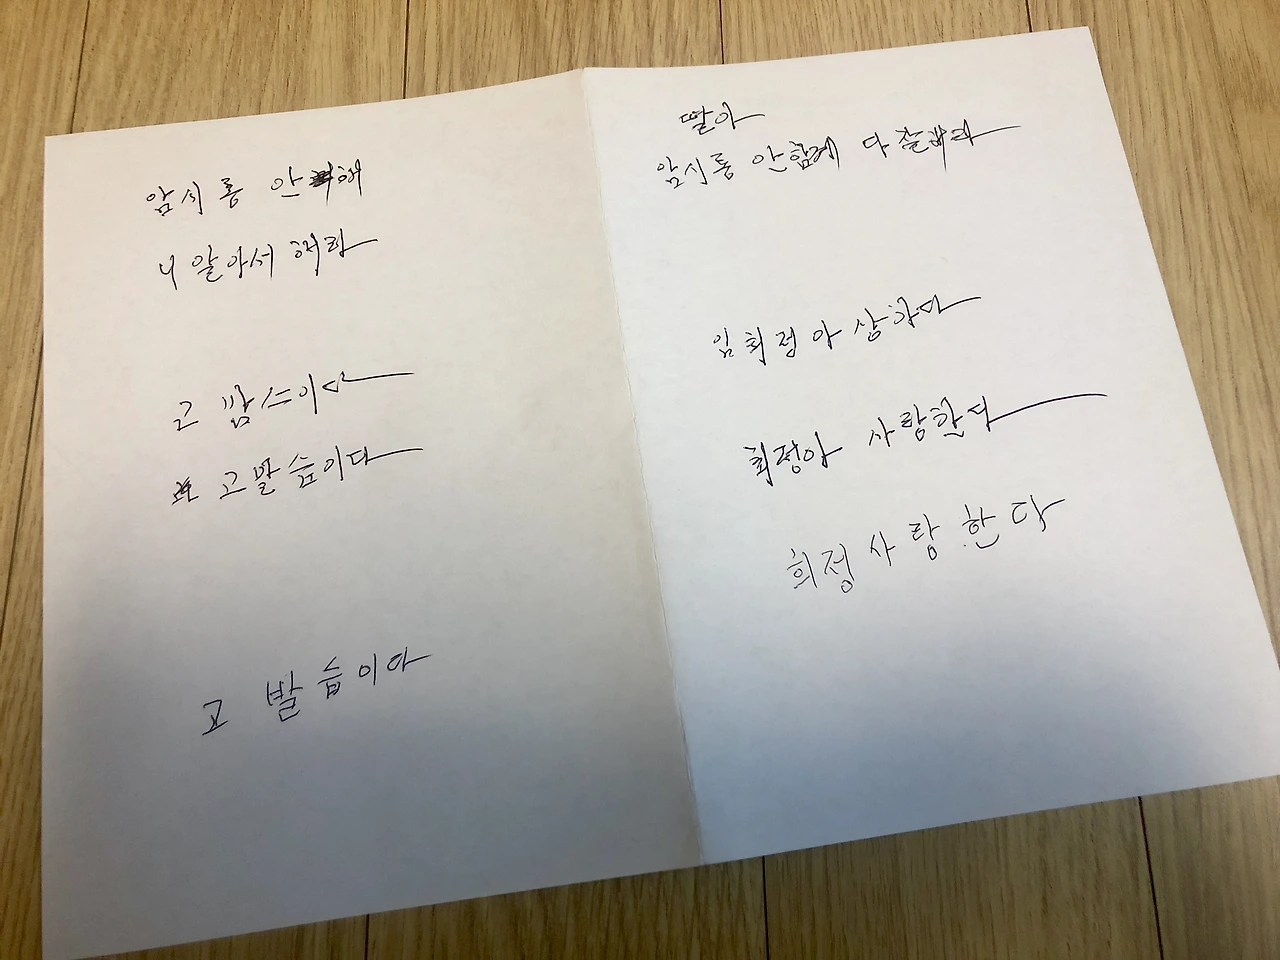 암시롱 안해
니 알아서 해라
고발습이다
고 발 습 이 다
딸아
암시롱 안함께 다 잘해라
임희정아 상한다
희정아 사랑한다
희정 사 랑 한 다